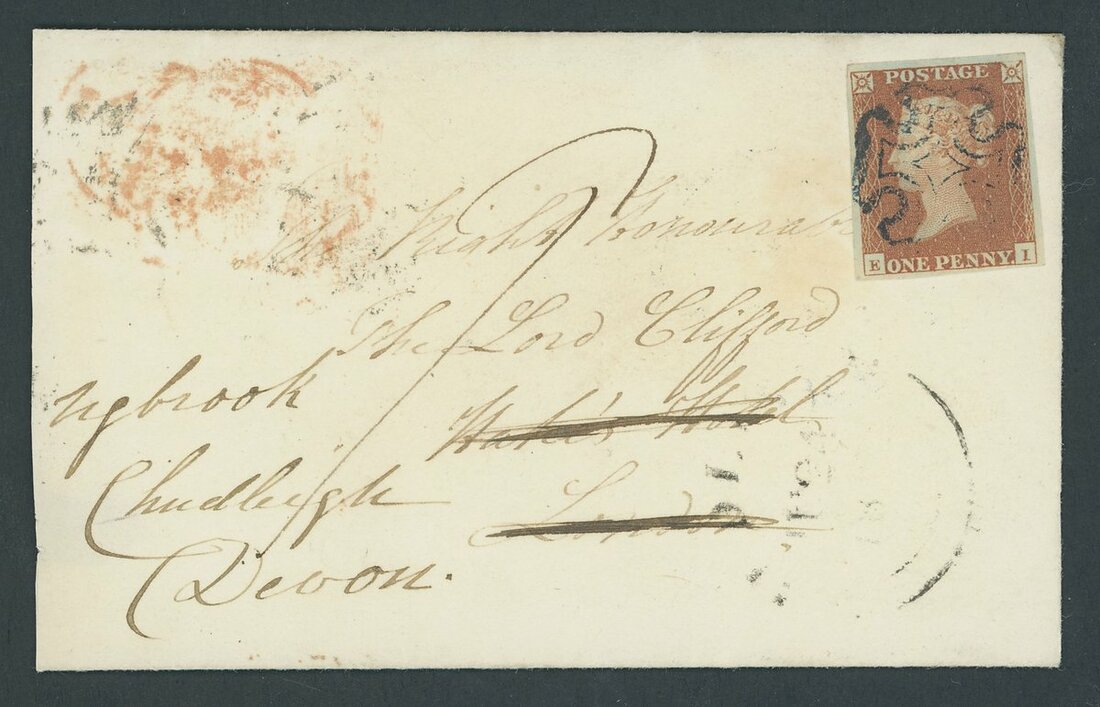 POSTAGE
E ONE PENNY. I
The Right Honourable
The Lord Clifford
Hotel
London
Ugbrook
Chudleigh
Devon.